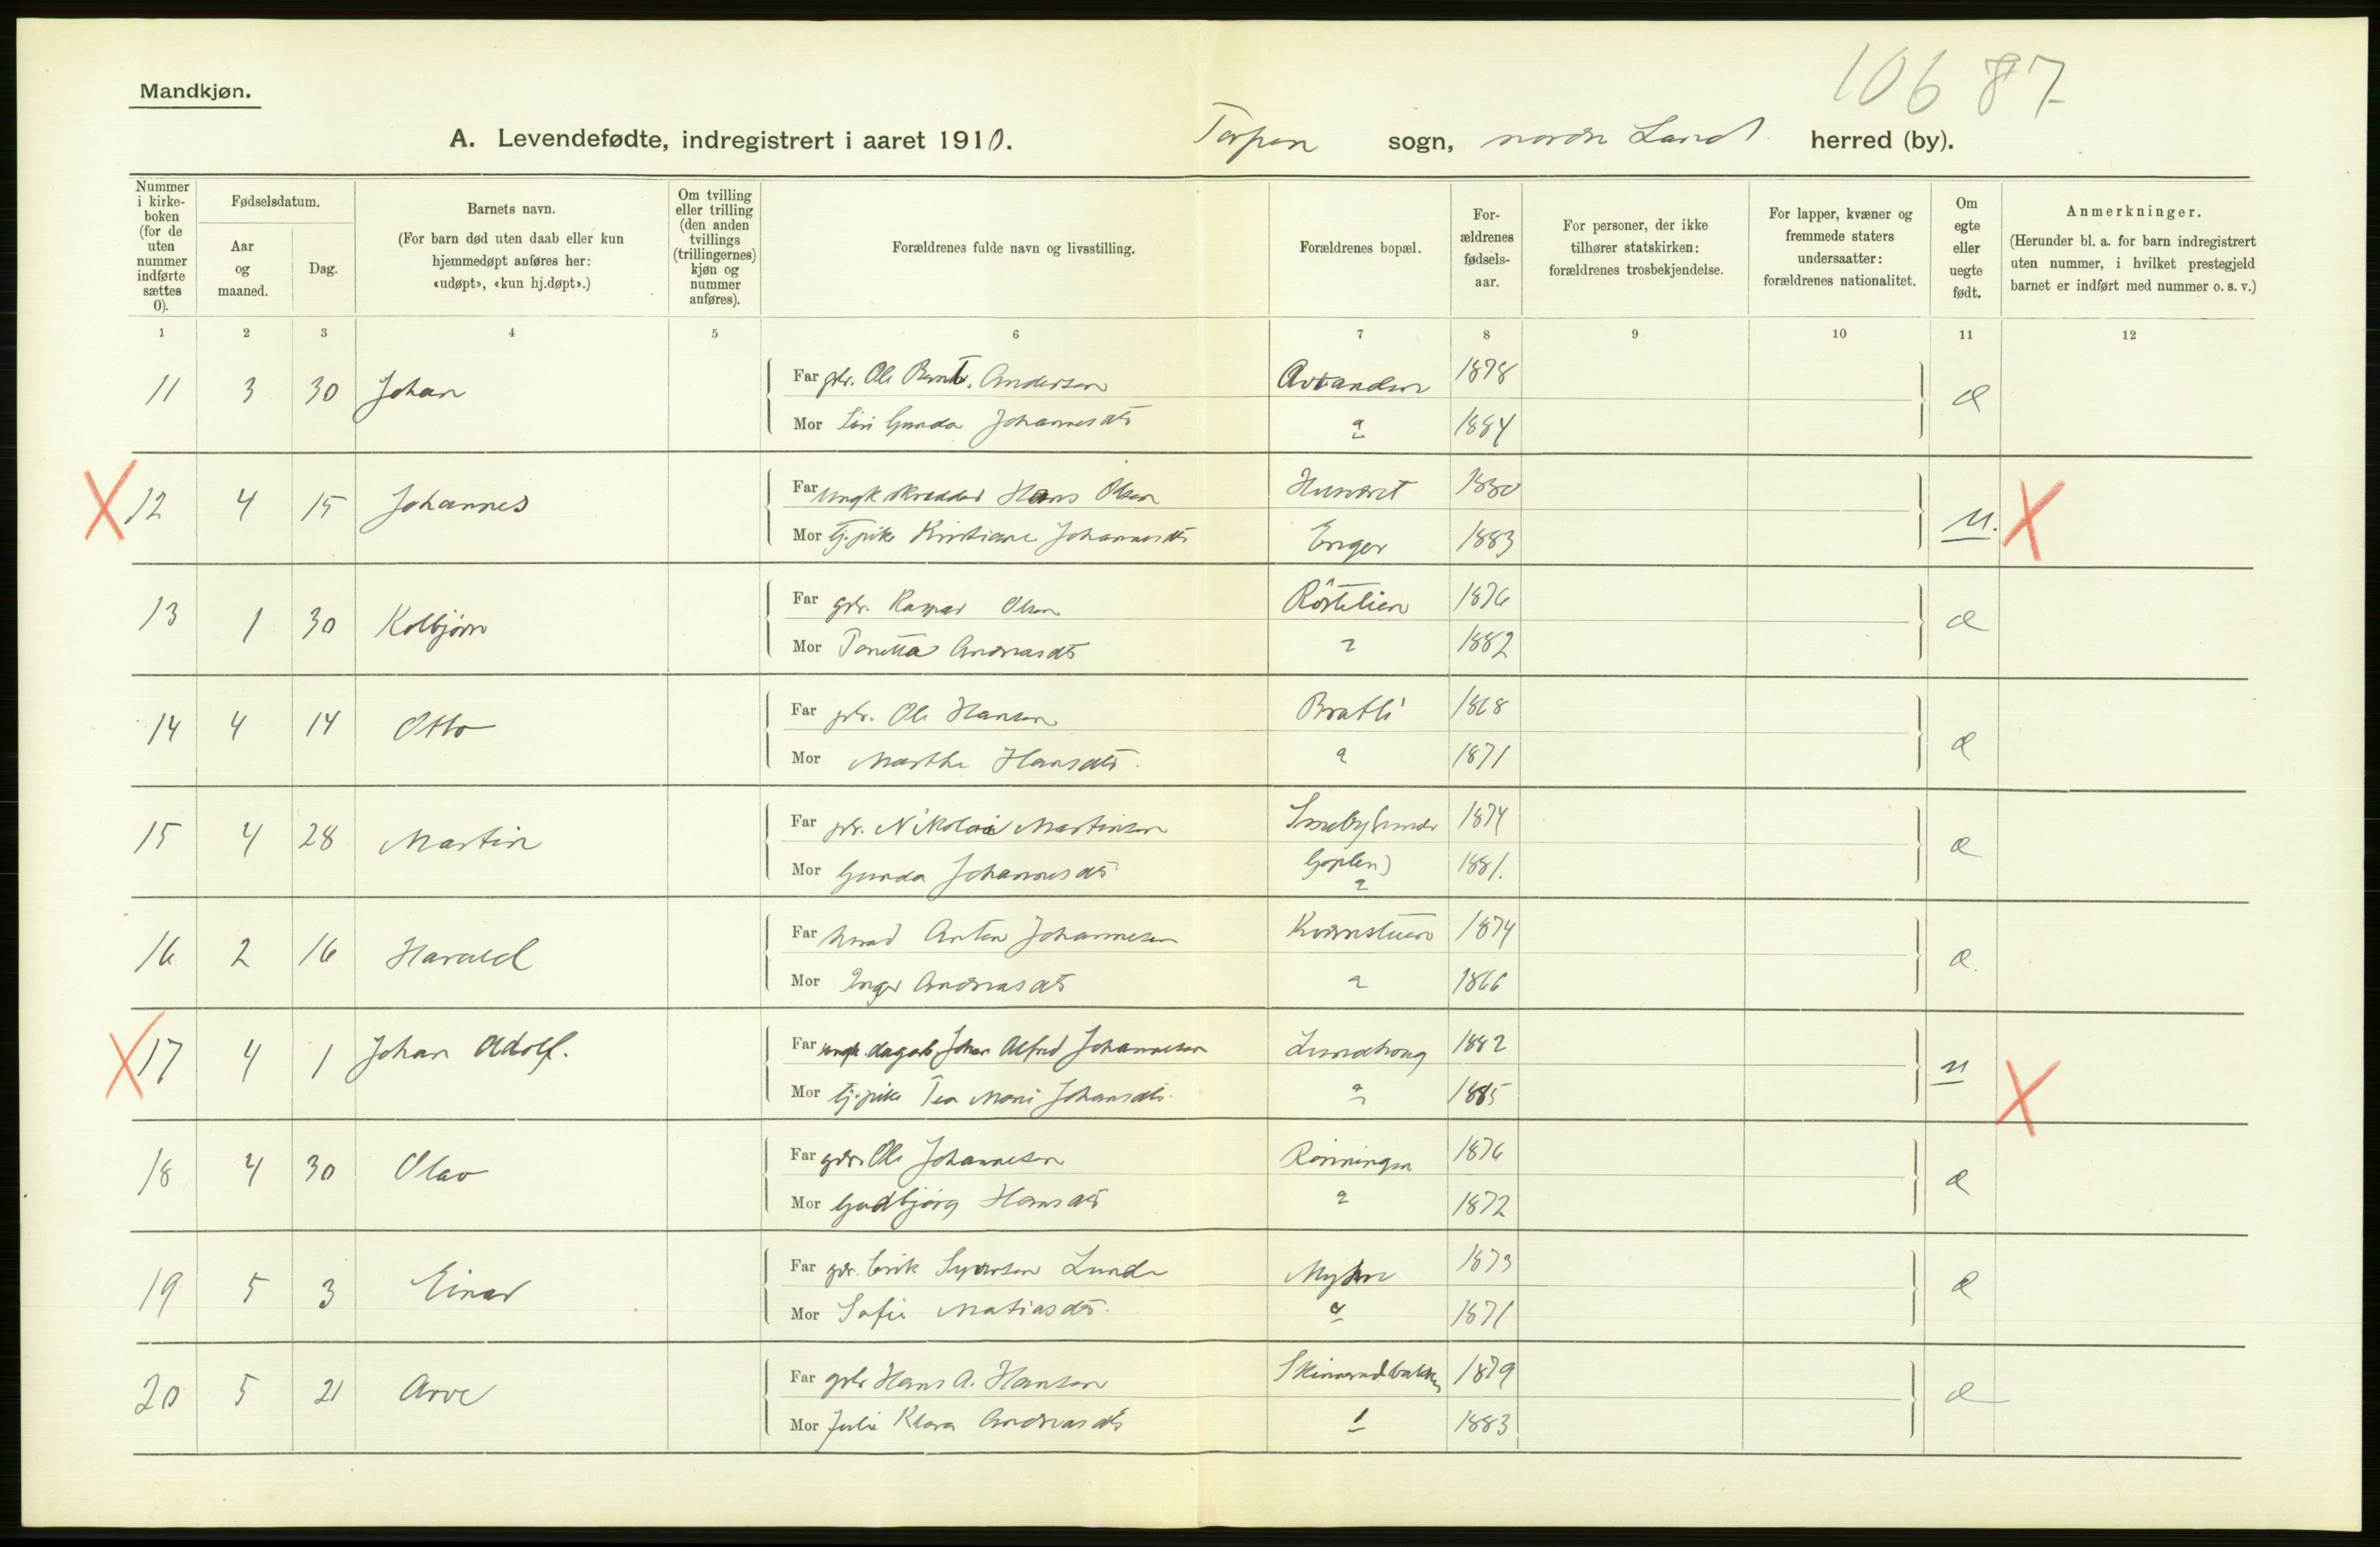 106 87
Mandkjøn.
A. Levendefødte, indregistrert i aaret 1910. Torpen sogn, nordre Land herred (by).
Nummer i kirke-boken (for de uten nummer indførte sættes 0).
Fødselsdatum.
Aar og maaned.
Dag.
Barnets navn.
(For barn død uten daab eller kun hjemmedøpt anføres her: «udøpt», «kun hj.døpt».)
Om tvilling eller trilling (den anden tvillings (trillingernes) kjøn og nummer anføres).
Forældrenes fulde navn og livsstilling.
Forældrenes bopæl.
For-ældrenes fødsels-aar.
For personer, der ikke tilhører statskirken: forældrenes trosbekjendelse.
For lapper, kvæner og fremmede staters undersaatter: forældrenes nationalitet.
Om egte eller uegte født.
Anmerkninger.
(Herunder bl. a. for barn indregistrert uten nummer, i hvilket prestegjeld barnet er indført med nummer o. s. v.)
1 2 3 4 5 6 7 8 9 10 11 12
11 3 30 Johan Far gbr. Ole Bernt. Andersen 1878 e
Mor Siri Gunda Johannesdtr 1884
X 12 4 15 Johannes Far ungk skrædder Hans Olsen 1880 u. X
Mor tj.pike Kristiane Johannesdtr Enger 1883
13 1 30 Kolbjørn Far gbr. Kaspar Olsen Röstelien 1876 e
Mor Tonetta Andreasdtr 1882
14 4 14 Otto Far gbr. Ole Hansen Bratli 1868 e
Mor Marthe Hansdtr. 1871
15 4 28 Martin Far gbr. Nikolai Martinsen 1874 e
Mor Gunda Johannesdtr Goplen) 1881.
16 2 16 Harald Far Anton Johannesen Kvernstuen 1874 e.
Mor Inger Andreasdtr 1866
X 17 4 1 Johan Adolf. Far ungk. dagarb. Johan Alfred Johannesen Lundhaug 1882 u X
Mor tj.pike Tea Mari Johansdtr. 1885
18 4 30 Olav Far gbr. Ole Johannesen Rønningen 1876 e
Mor Gudbjørg Hansdtr 1872
19 5 3 Einar Far gbr. Erik Syversen Lunde Myhre 1873 e
Mor Sofie Matiasdtr. 1871
20 5 21 Arve Far gbr Hans A. Hansen 1879 e
Mor Julie Klara Andreasdtr 1883